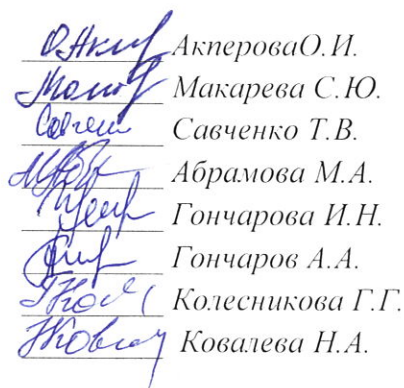 АкпероваО.И.
Макарева С.Ю.
Савченко Т.В.
Абрамова М.А.
Гончарова И.Н.
Гончаров А.А.
Колесникова Г.Г.
Ковалева Н.А.